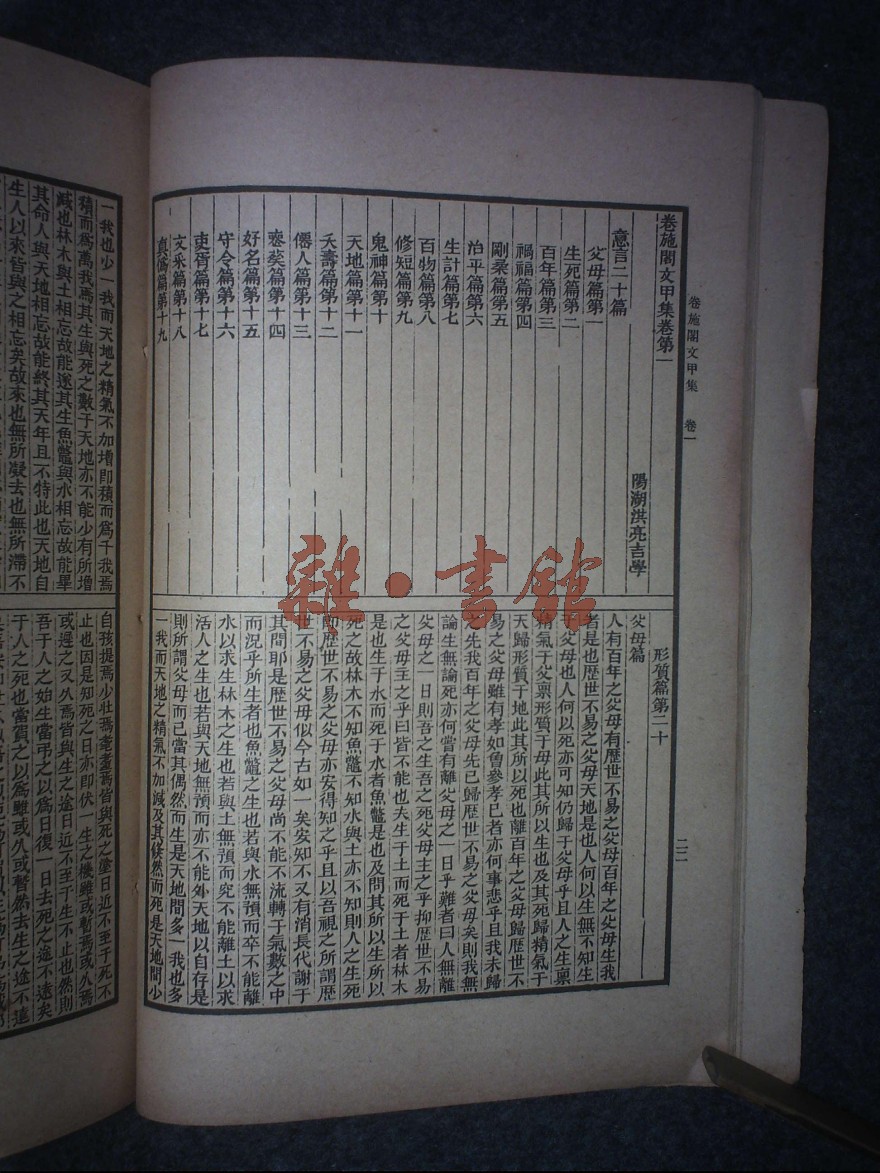 卷施閣文甲集 卷一
二二
卷施閣文甲集卷第一
陽湖洪亮吉學
意言二十篇
父母篇第一
生死篇第二
百年篇第三
禍福篇第四
剛柔篇第五
治平篇第六
生計篇第七
百物篇第八
修短篇第九
鬼神篇第十
天地篇第十一
夭壽篇第十二
僊人篇第十三
喪葬篇第十四
好名篇第十五
守令篇第十六
吏胥篇第十七
文采篇第十八
真偽篇第十九
形質篇第二十
父母篇
人有百年之父母有歷世不易之父母百年之父母生我
者是也歷世不易之父母天地是也人何以生無不知生
于父母也人何以死亦可知仍歸于父母乎且人之生稟
精氣于父稟形質于母此其所以生也及其死歸精氣于
天歸形質于地此其所以死也離百年之父母歸歷世不
易之父母雖有孝如曾參孝已者亦何事悲乎且我未歸
之先我百年之父母先已歸歷世不易之父母矣則我無
論生無論死亦何嘗有離父母之一日乎難者曰人無離
父母之一日則吾之生吾之死父母主之乎抑歷世不易
之父母主之乎曰皆不能也夫生于土而死于土者林木
是也生于水而死于水者魚鼈是也及問其所以生所以
死之故林木不知魚鼈不知水與土亦不知則人之生死
即歷世不易之父母亦安得知之乎且以吾視之所謂歷
世不易之父母似今古如一矣安知不又有消長代謝于
其間耶是歷世不易之父母尚不能不流轉于氣數之中
而況乎所生者也魚鼈之生也若與水無預而卒不能離
水以求生林木之生也若與土無預而究不能離土以求
活人之生也若與天地無預而亦不能外天地以自存是
則所謂父母而已當其偶然而生是天地間多一我也多
一我而天地之精氣不加減及其倏然而死是天地間少
一我也少一我而天地之精氣不加增即積而爲千我焉
積而爲萬我焉其生與死之數于天地亦不能少有所增
減也林木與土相忘故能遂其生魚鼈與水相忘故能畢
其命人與天地相忘故能終其天年且不特此也天地自
生人以來皆與之相忘矣故來也無所凝去也無所滯不
自孩提焉少壯焉老耄焉皆與死之塗日近不至于死不
止也因是知死之日亦即伏一生之機雖或暫焉或久焉
或遲之又久焉皆與生之途日近不至于生不止也然則
吾于人之始生當弔之以爲日復一日去死之途不遠矣
于人之死也當賀之以爲雖或久或暫然去生之途不遠
雜·書館